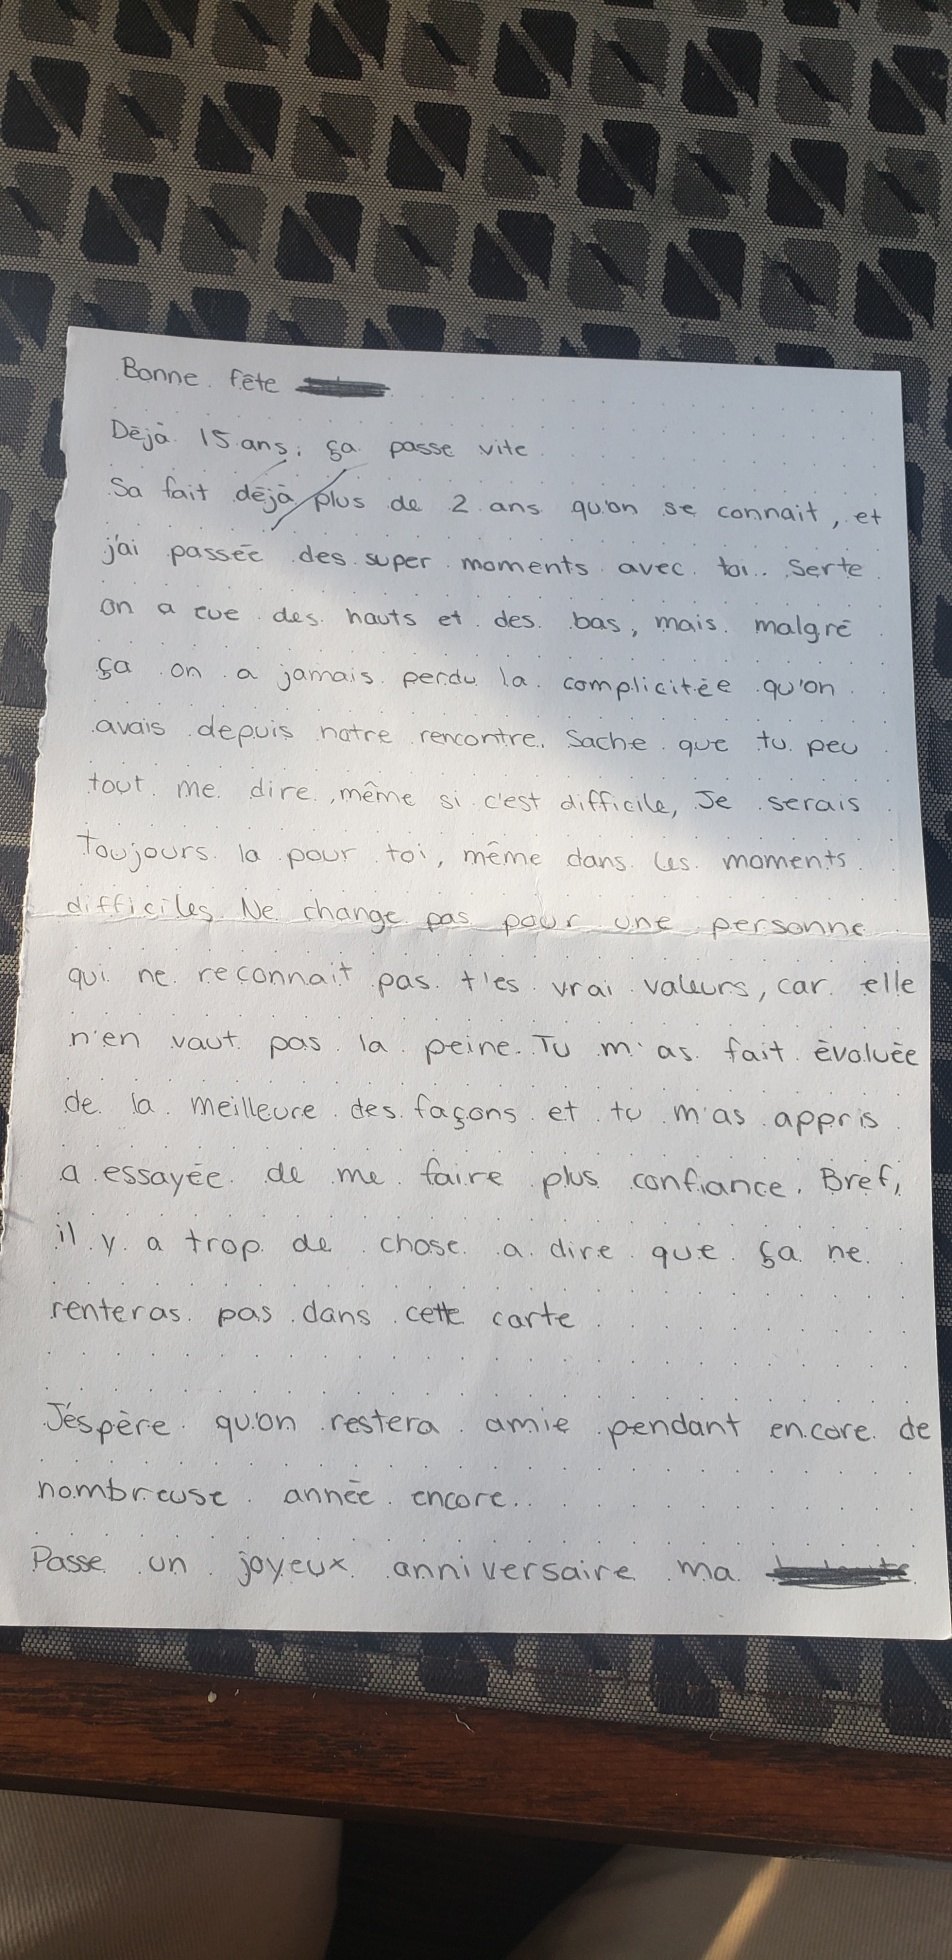 Bonne fête
Déjà 15 ans, ça passe vite
Sa fait déjà plus de 2 ans qu'on se connait, et
j'ai passée des super moments avec toi. Serte
on a eue des hauts et des bas, mais malgré
ça on a jamais perdu la complicitée qu'on
avais depuis notre rencontre. Sache que tu peu
tout me dire, même si c'est difficile, Je serais
Toujours la pour toi, même dans les moments
difficiles. Ne change pas pour une personne
qui ne reconnait pas t'es vrai valeurs, car elle
n'en vaut pas la peine. Tu m'as fait évoluée
de la meilleure des façons et tu m'as appris
a essayée de me faire plus confiance. Bref,
il y a trop de chose a dire que ça ne
renteras pas dans cette carte
J'éspère qu'on restera amie pendant encore de
nombreuse année encore.
Passe un joyeux anniversaire ma